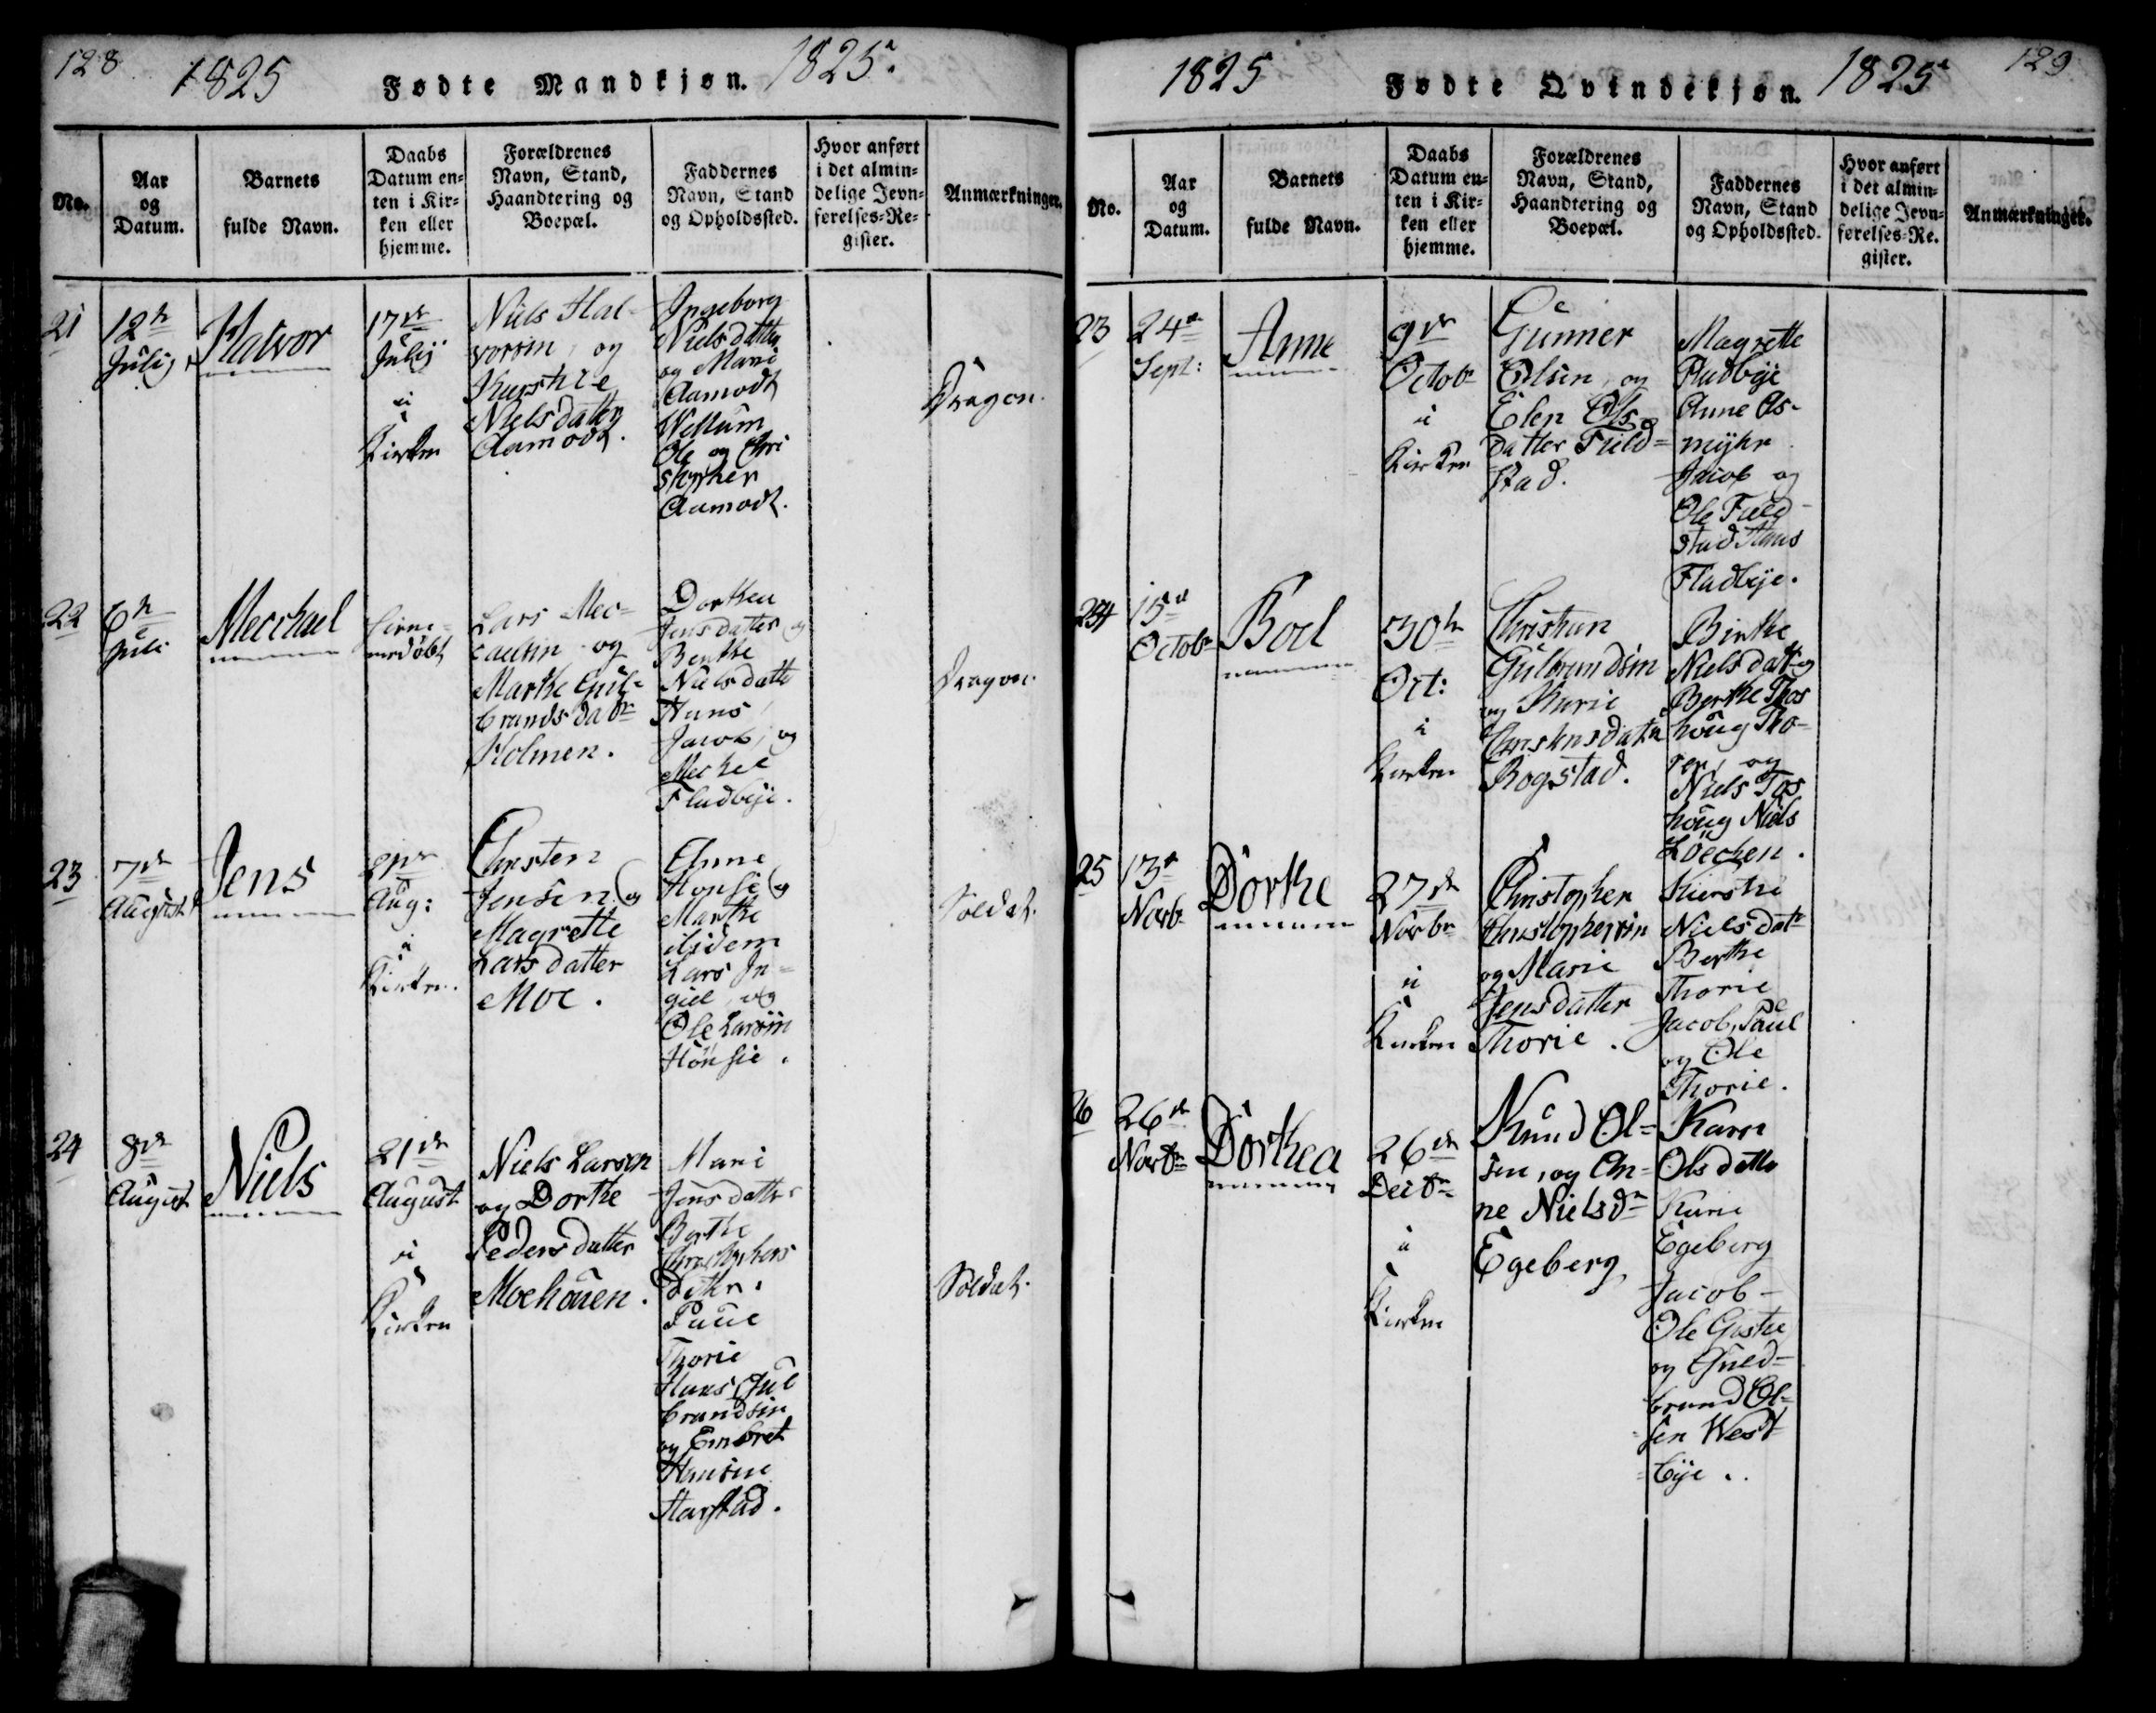 128
1825
Fødte Mandkjøn.
1825.
No.
Aar
og
Datum.
Barnets
fulde Navn.
Daabs
Datum en-
ten i Kir-
ken eller
hjemme.
Forældrenes
Navn, Stand,
Haandtering og
Boepæl.
Faddernes
Navn, Stand
og Opholdssted.
Hvor anført
i det almin-
delige Jevn-
førelses-Re-
gister.
Anmærkninger.
21
12te
Julij
Halvor
17de
Julij
i
Kirken
Niels Hal-
vorsen, og
Kirstie
Nielsdatter
Aamodt.
Ingeborg
Nielsdatter
og Mari
Aamodt
Ole og Chri
stopher
Aamodt.
Dragon.
22
6te
Juli
Mechael
Lars Mec-
kaelsen og
Marthe Gul-
brandsdatr
Holmen.
Dorthea
Jensdatter og
Berthe
Nielsdatte
Hans,
Jacob, og
Mechel
Fladbye.
Dragon.
23
7de
August
Jens
21de
Aug:
i
Kirken.
Christen
Jensen og
Magrette
Larsdatter
Moe.
Anne
Hønsie og
Marthe
ibidem
Lars In-
giel, og
Ole Larsen
Hønsie.
Soldat.
24
8de
August
Niels
21de
August
i
Kirken
Niels Larsen
og Dorthe
Pedersdatter
Moehouen.
Mari
Jensdatter
Berthe
Christophers
datter.
Paul
Thorie
Hans Gul
brandsen
og Embret
Hansen
Harstad.
Soldat.
1825
Fødte Qvindekjøn.
1825
129
No.
Aar
og
Datum.
Barnets
fulde Navn.
Daabs
Datum en-
ten i Kir-
ken eller
hjemme.
Forældrenes
Navn, Stand,
Haandtering og
Boepæl.
Faddernes
Navn, Stand
og Opholdssted.
Hvor anført
i det almin-
delige Jevn-
førelses-Re-
gister.
Anmærkninger.
23
24de
Sept:
Anne
9de
Octob
i
Kirken
Gunner
Olsen, og
Elen Ols-
datter Field-
stad.
Magrette
Fladbye
Anne As-
myhr
Jacob og
Ole Field-
stad Hans
Fladbye.
24
15de
Octobr
Boel
30te
Oct:
i
Kirken
Christian
Gulbrandsen
og Karie
Christensdatr
Rogstad.
Birthe
Nielsdatr og
Berthe Thos
houg Tho-
rer, og
Niels Tos
houg Niels
Løechen.
25
13de
Novb
Dorthe
27de
Novbr
i
Kirken
Christopher
Christophersen
og Marie
Jensdatter
Thorie.
Kierstie
Nielsdatr
Berthe
Thorie
Jacob, Paul
og Ole
Thorie.
26
26de
Novbr
Dorthea
26de
Decbr
i
Kirken
Knud Ol-
sen, og An-
ne Nielsdr
Egeberg
Karen
Olsdatter
Karie
Egeberg
Jacob
Ole
og Guld-
brand Ol-
sen West
bye.